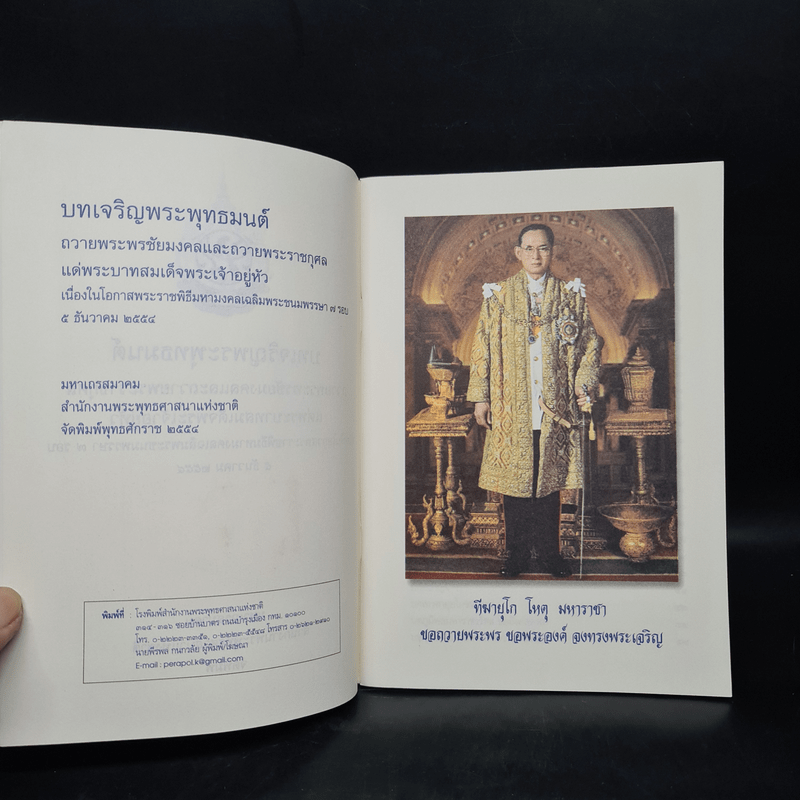 บทเจริญพระพุทธมนต์
ถวายพระพรชัยมงคลและถวายพระราชกุศล
แด่พระบาทสมเด็จพระเจ้าอยู่หัว
เนื่องในโอกาสพระราชพิธีมหามงคลเฉลิมพระชนมพรรษา ๗ รอบ
๕ ธันวาคม ๒๕๕๔
มหาเถรสมาคม
สำนักงานพระพุทธศาสนาแห่งชาติ
จัดพิมพ์พุทธศักราช ๒๕๕๔
พิมพ์ที่ : โรงพิมพ์สำนักงานพระพุทธศาสนาแห่งชาติ
๓๑๔-๓๑๖ ซอยบ้านบาตร ถนนบำรุงเมือง กทม. ๑๐๑๐๐
โทร. ๐-๒๒๒๓-๓๓๕๑, ๐-๒๒๒๓-๕๕๔๘ โทรสาร ๐-๒๖๒๑-๒๘๑๐
นายพีรพล กนกวลัย ผู้พิมพ์/โฆษณา
E-mail : perapol.k@gmail.com
ทีฆายุโก โหตุ มหาราชา
ขอถวายพระพร ขอพระองค์ จงทรงพระเจริญ